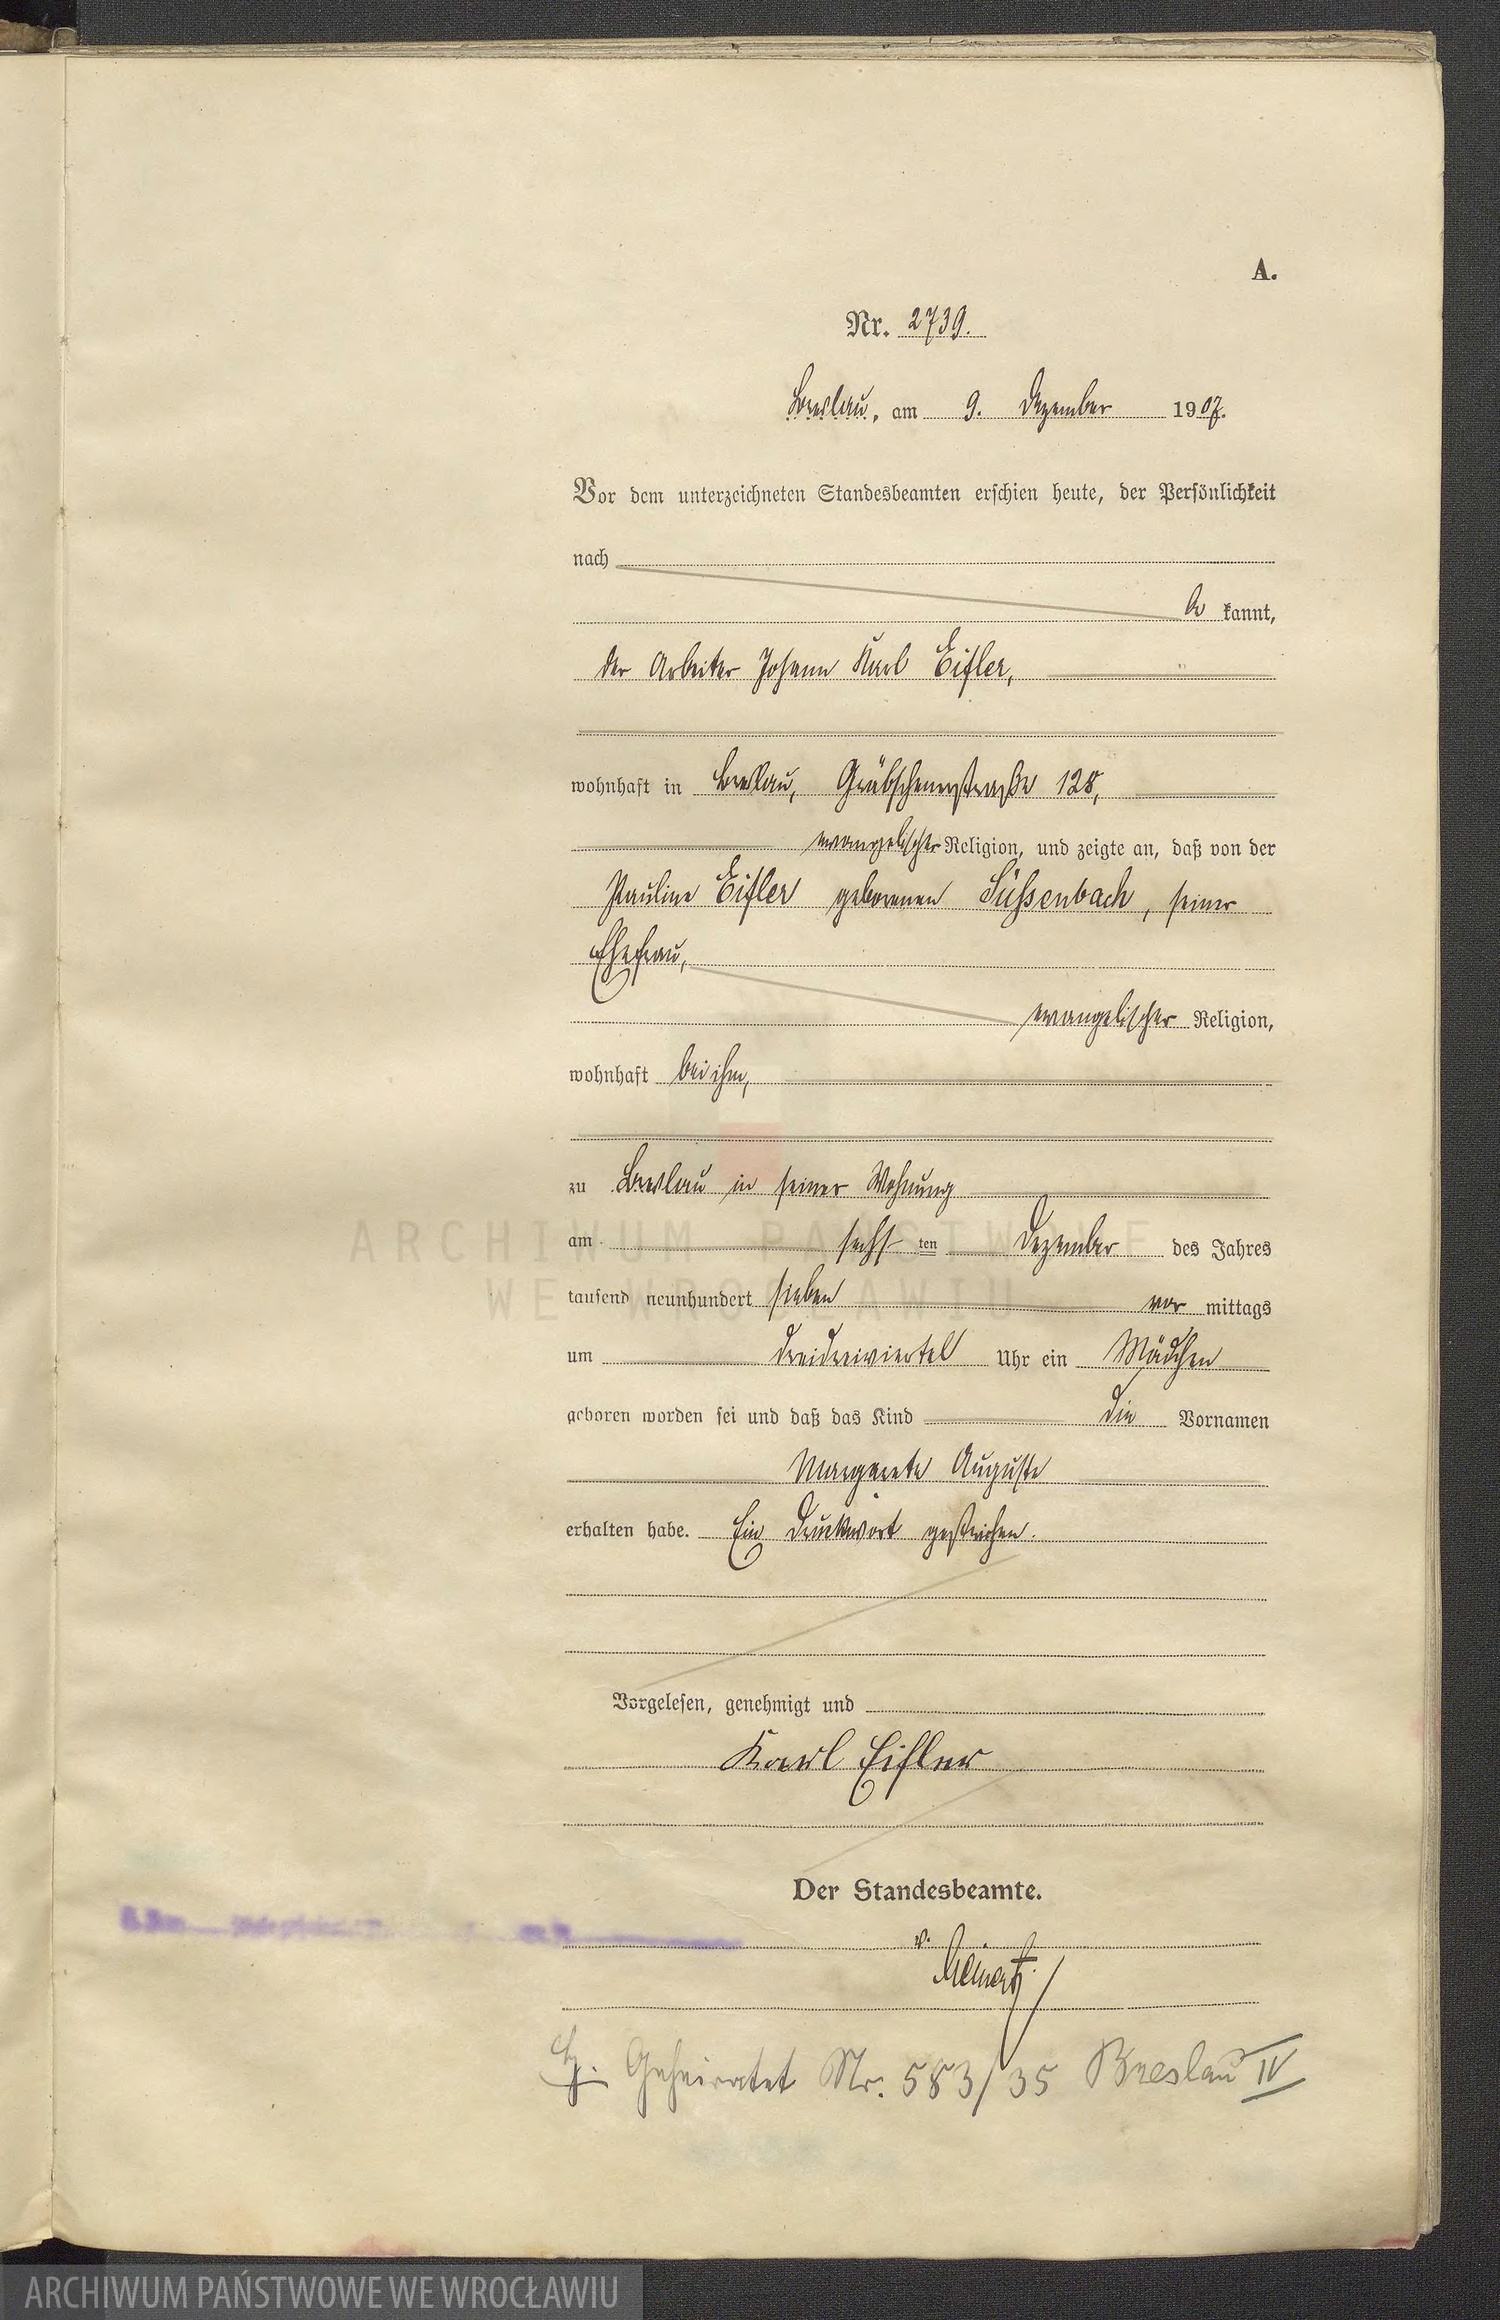 A.
Nr. 2739.
Breslau, am 9. Dezember 1907.
Vor dem unterzeichneten Standesbeamten erschien heute, der Persönlichkeit
nach
be kannt,
der Arbeiter Johann Karl Eifler,
wohnhaft in Breslau, Gräbschenerstraße 128,
evangelischer Religion, und zeigte an, daß von der
Pauline Eifler geborenen Süßenbach, seiner
Ehefrau,
evangelischer Religion,
wohnhaft bei ihm,
zu Breslau in seiner Wohnung
am sechs ten Dezember des Jahres
tausend neunhundert sieben vor mittags
um dreidreiviertel Uhr ein Mädchen
geboren worden sei und daß das Kind die Vornamen
Margarete Auguste
erhalten habe. Ein Druckwort gestrichen.
Vorgelesen, genehmigt und
Karl Eifler
Der Standesbeamte.
Geheiratet Nr. 583/35 Breslau IV
ARCHIWUM PAŃSTWOWE
WE WROCŁAWIU
ARCHIWUM PAŃSTWOWE WE WROCŁAWIU